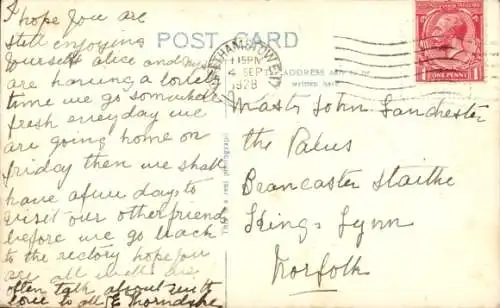 I hope you are
still enjoying
yourself Alice and myself
are having a lovely
time we go somewhere
fresh every day we
are going home on
friday then we shall
have a few days to
visit our other friends
before we go back
to the rectory hope you
are all well we
often talk about you with
love to all E Thorndike
POST CARD
WALTHAMSTOW
1 15PM
4 SEP
1928
ADDRESS
POSTAGE REVENUE
ONE PENNY
Master John Sanchester
the
Brancaster Staithe
Kings Lynn
Norfolk
This is a real photograph